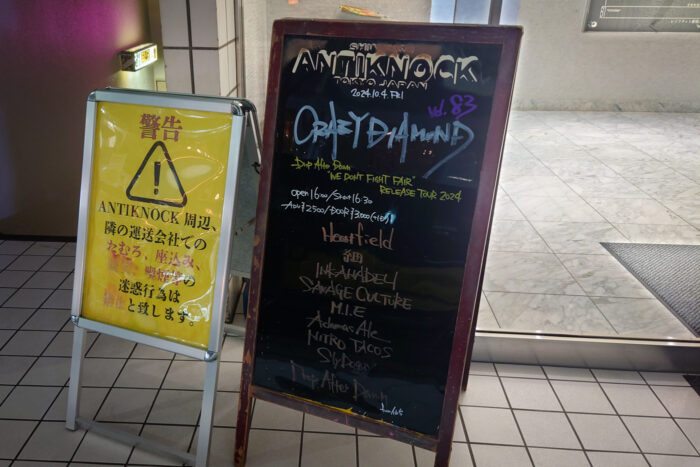 警告
ANTIKNOCK 周辺、
隣の運送会社での
たむろ、座込み、
喫煙等の
迷惑行為は
禁止と致します。
ANTIKNOCK
TOKYO JAPAN
2024.10.4. FRI
Vol. 83
CRAZY DIAMOND
Drop After Dawn
"WE DON'T FIGHT FAIR"
RELEASE TOUR 2024
open 16:00/Start 16:30
Heartfield
INSANADELY
SAVAGE CULTURE
M.I.E
Adamas Ale
NITRO TACOS
Drop After Dawn